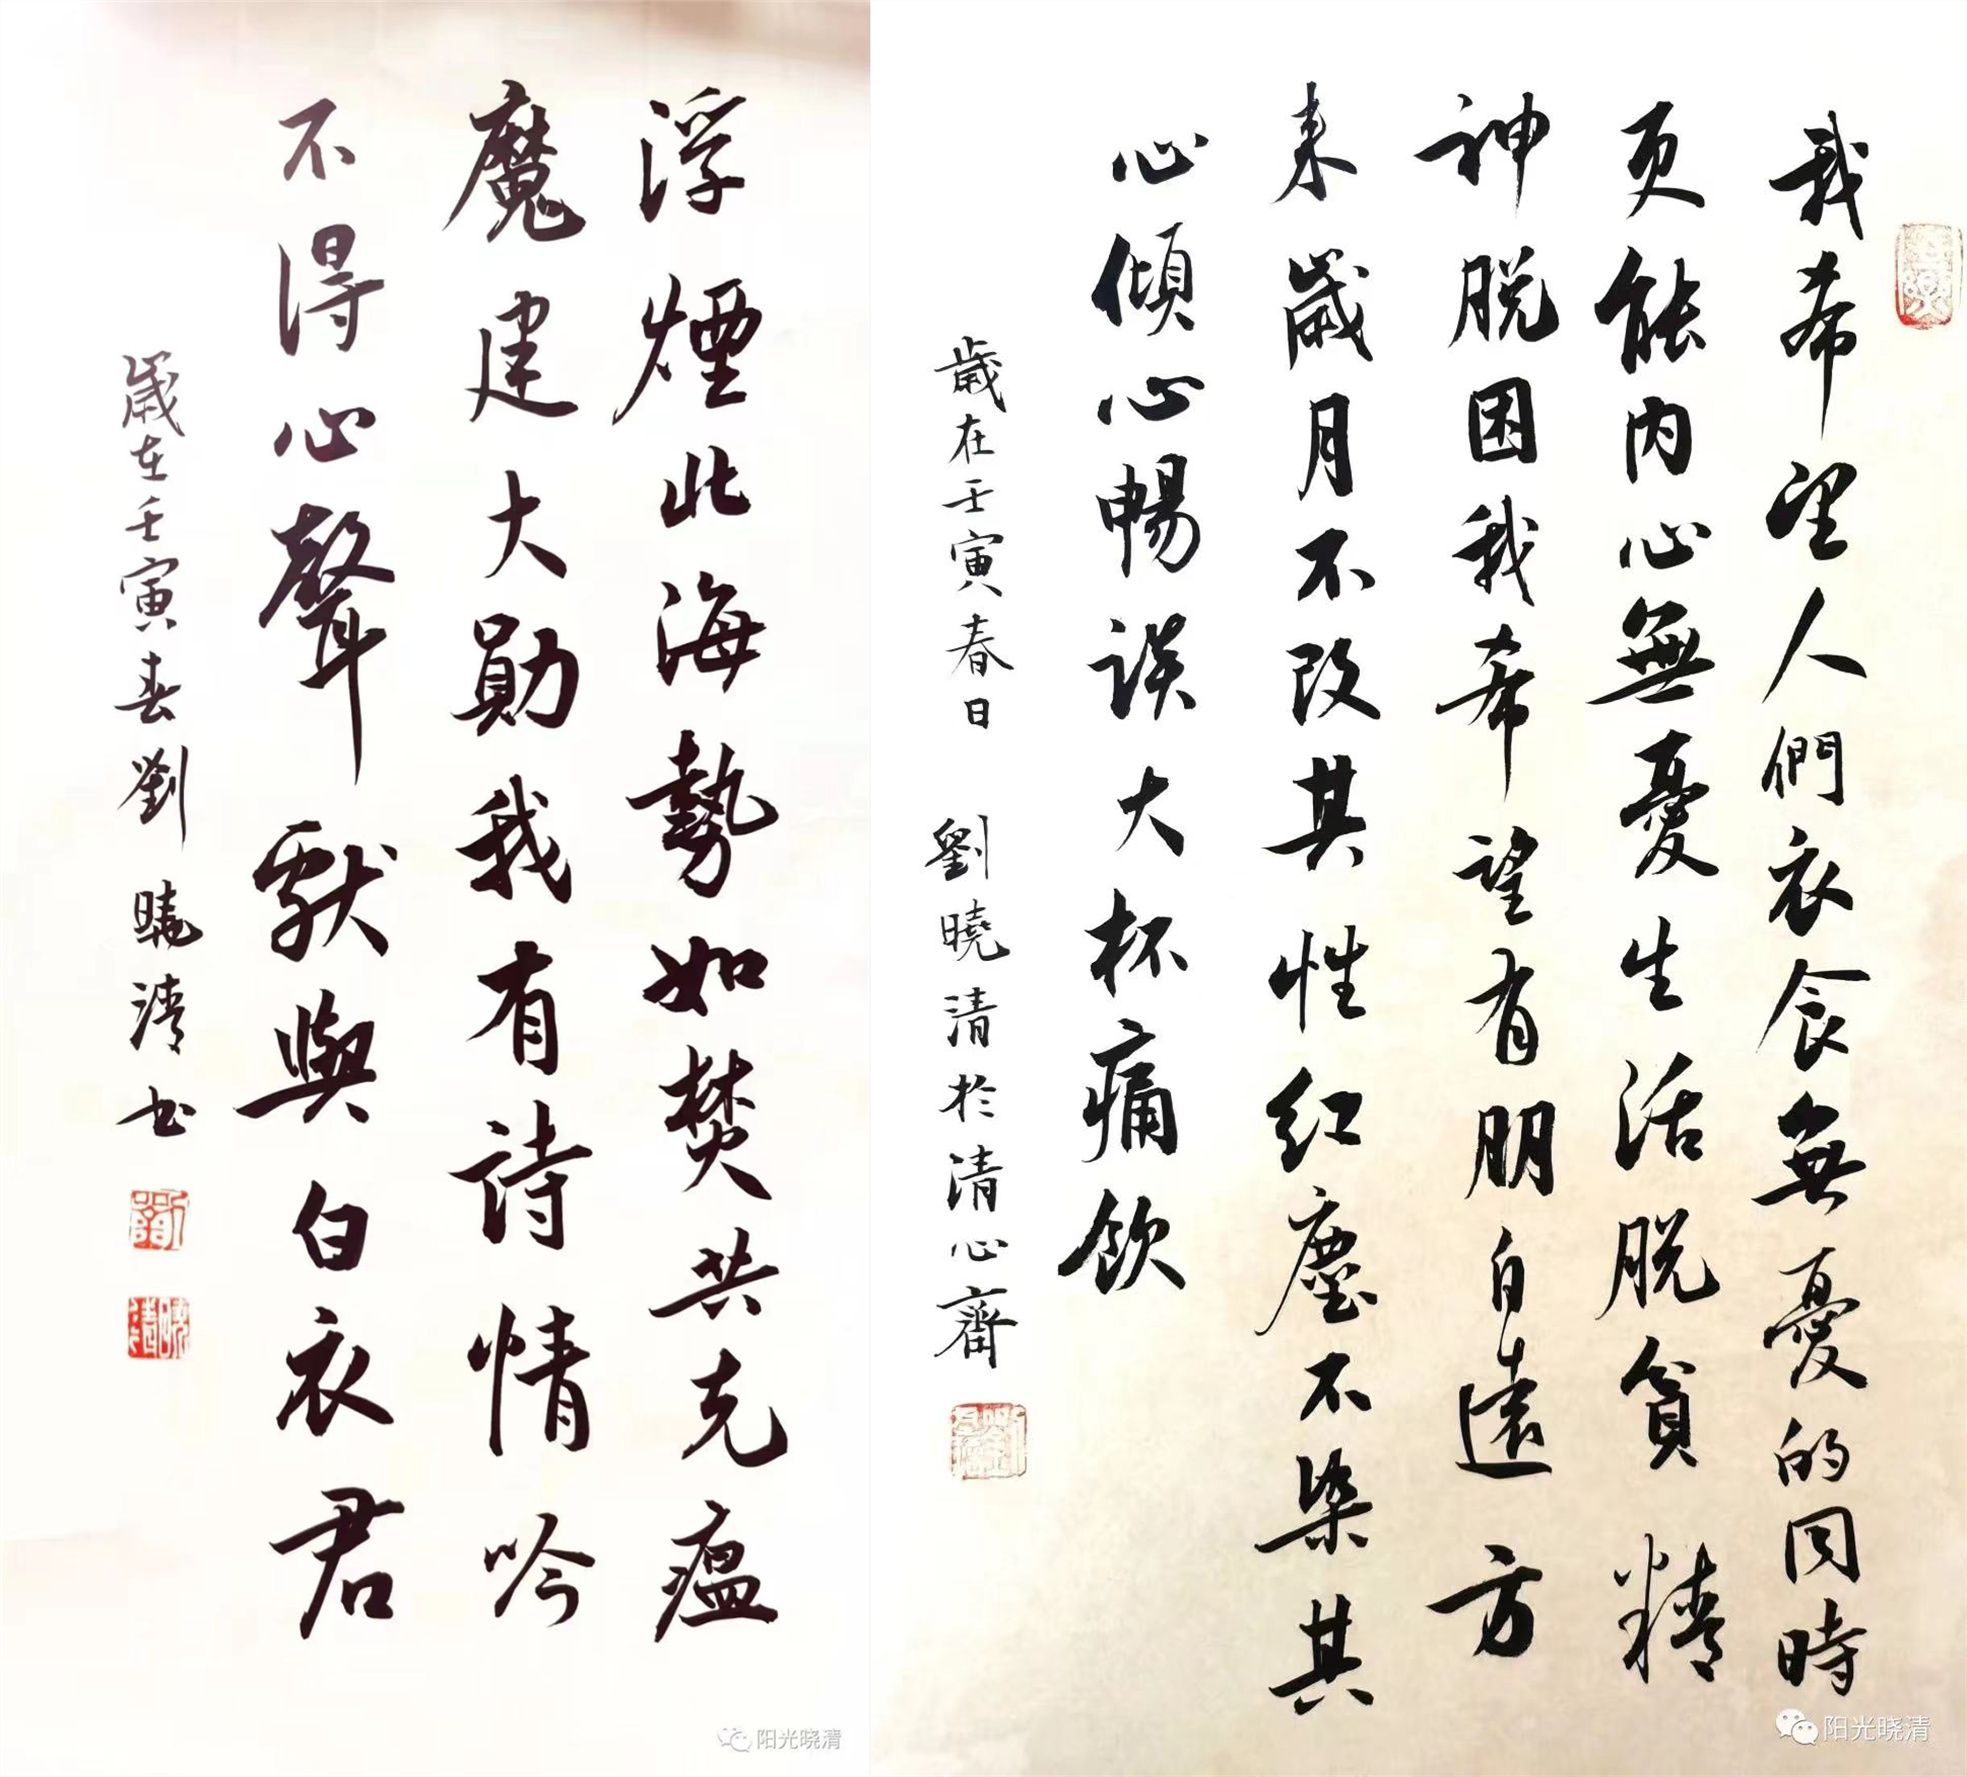 我希望人們衣食無憂的同時
更能內心無憂生活脱貧精
神脱困我希望有朋自遠方
来歲月不改其性红塵不染其
心傾心暢談大杯痛飲
歲在壬寅春日 劉曉清於清心齋
阳光晓清
浮煙此海勢如焚共克瘟
魔建大勛我有詩情吟
不得心聲獻與白衣君
歲在壬寅春劉曉清书
阳光晓清